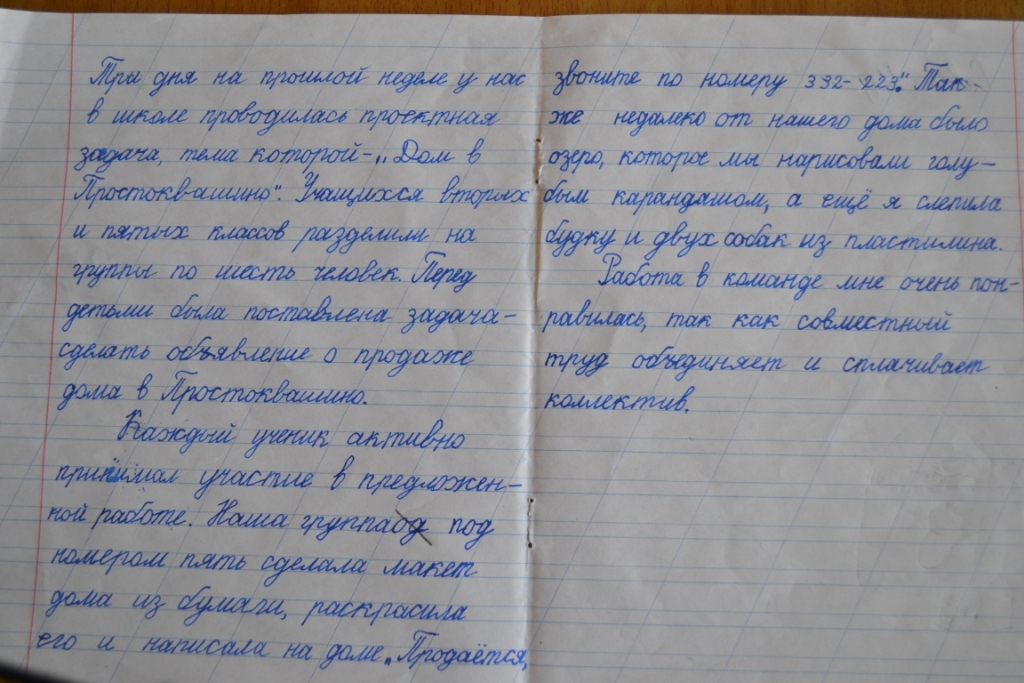 Три дня на прошлой неделе у нас
в школе проводилась проектная
задача, тема которой-„Дом в
Простоквашино". Учащихся вторых
и пятых классов разделили на
группы по шесть человек. Перед
детьми была поставлена задача-
сделать объявление о продаже
дома в Простоквашино.
Каждый ученик активно
принимал участие в предложен-
ной работе. Наша группа под
номером пять сделала макет
дома из бумаги, раскрасила
его и написала на доме „Продаётся,
звоните по номеру 332-223". Так
же недалеко от нашего дома было
озеро, которое мы нарисовали голу-
бым карандашом, а ещё я слепила
будку и двух собак из пластилина.
Работа в команде мне очень пон-
равилась, так как совместный
труд объединяет и сплачивает
коллектив.